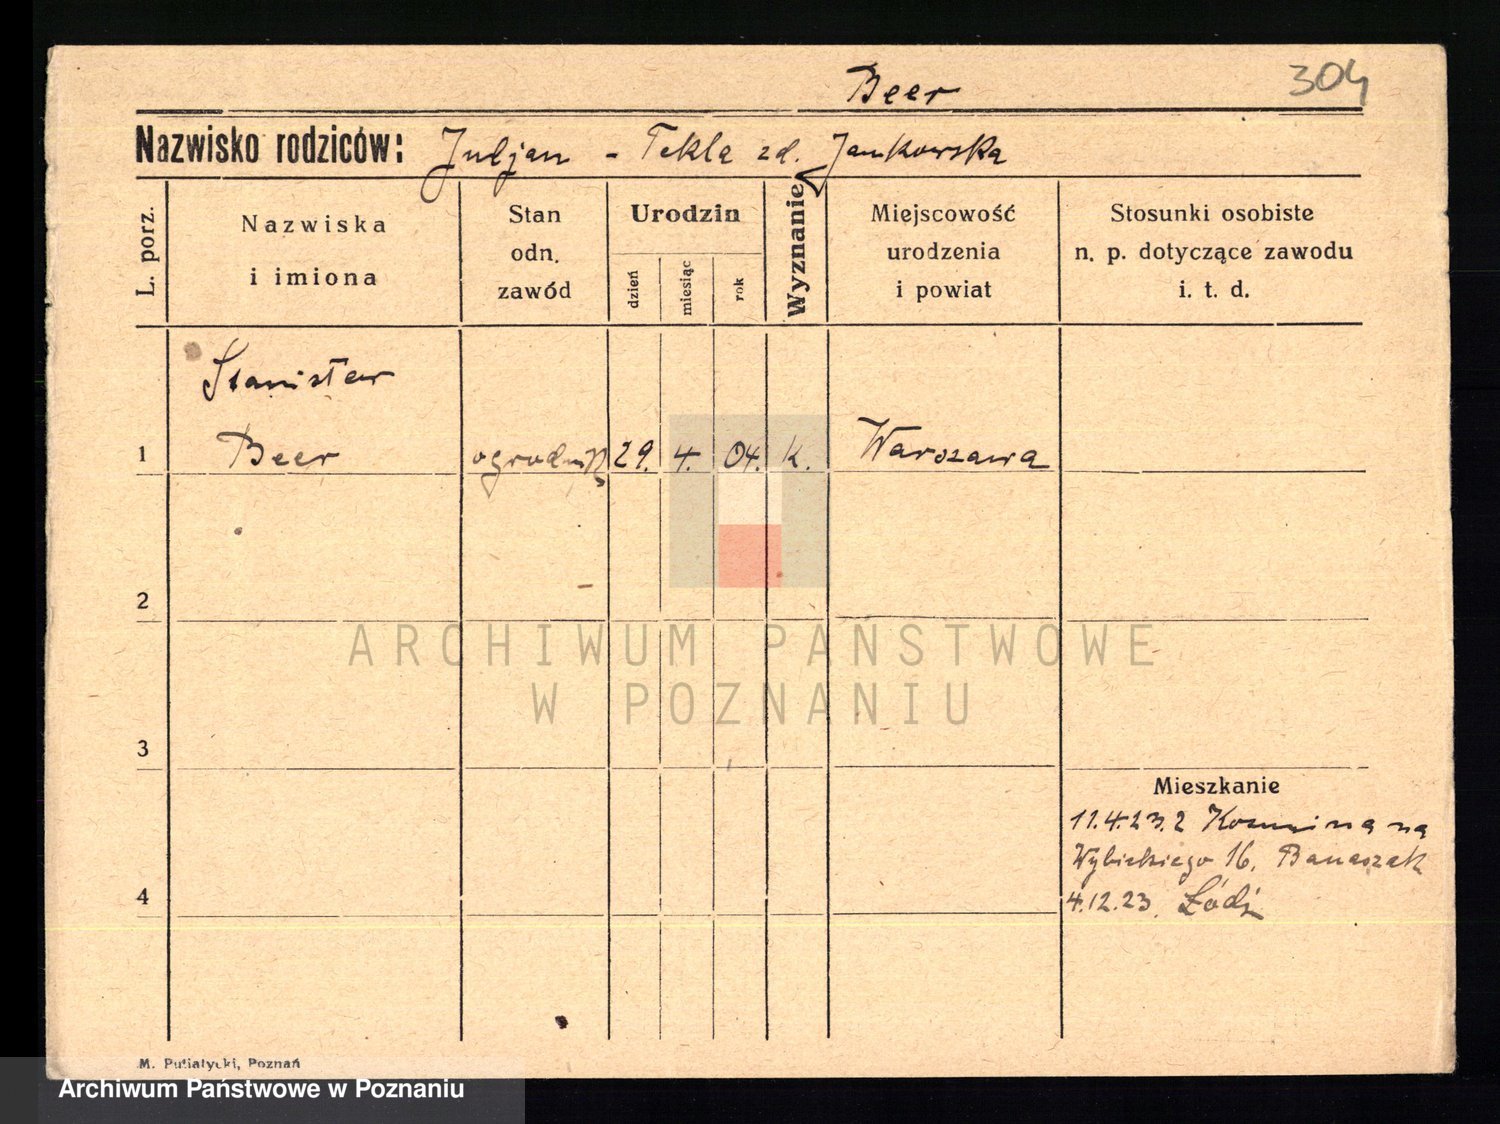 Beer
304
Nazwisko rodziców: Juljan - Tekla zd. Jankowska
L. porz.
Nazwiska
i imiona
Stan
odn.
zawód
Urodzin
dzień
miesiąc
rok
Wyznanie
Miejscowość
urodzenia
i powiat
Stosunki osobiste
n. p. dotyczące zawodu
i. t. d.
Stanisław
1 Beer ogrodnik 29. 4. 04. k. Warszawa
2
ARCHIWUM PAŃSTWOWE
W POZNANIU
3
Mieszkanie
11.4.23. z
Wybickiego 16. Banaszak
4
4.12.23. Łódź
M. Putiatycki, Poznań
Archiwum Państwowe w Poznaniu